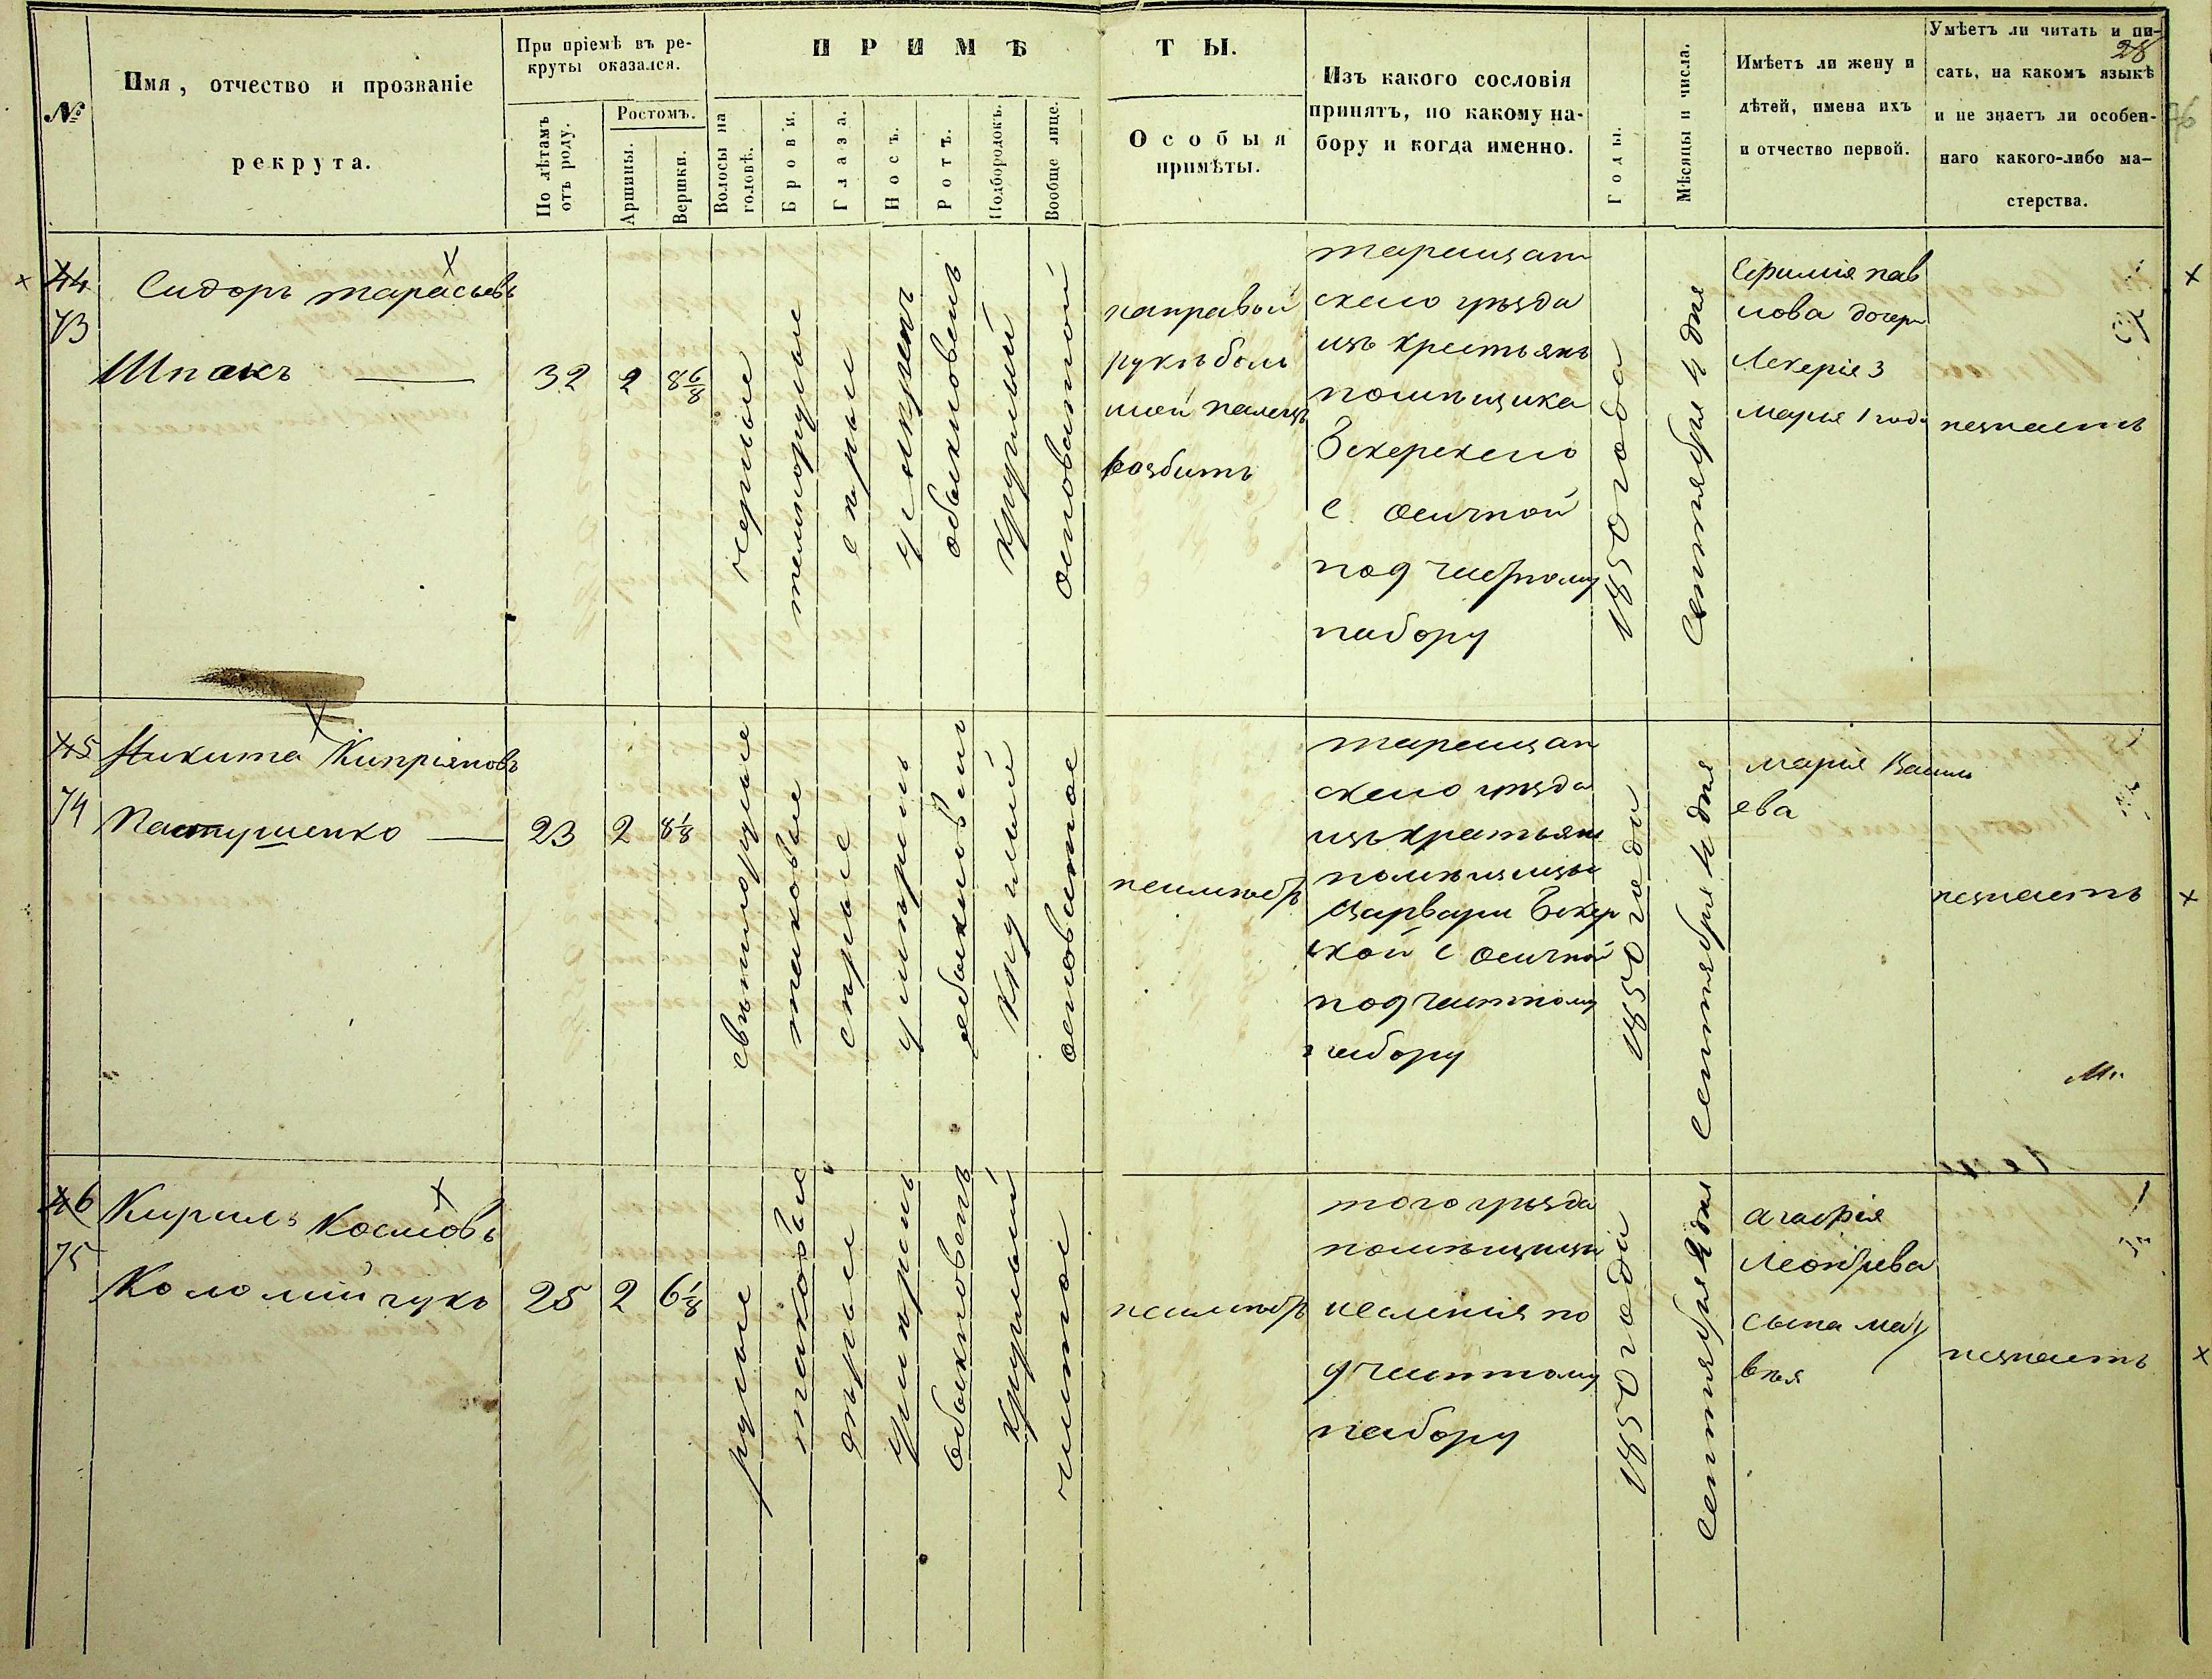 №
Имя, отчество и прозваніе
рекрута.
При пріемѣ въ ре-
круты оказался.
По лѣтамъ
отъ роду.
Ростомъ.
Аршины.
Вершки.
ПРИМѢ
ТЫ.
Волосы на
головѣ.
Брови.
Глаза.
Носъ.
Ротъ.
Подбородокъ.
Вообще лице.
Особыя
примѣты.
Изъ какого сословія
принятъ, по какому на-
бору и когда именно.
Годы.
Мѣсяцы и числа.
Имѣетъ ли жену и
дѣтей, имена ихъ
и отчество первой.
Умѣетъ ли читать и пи-
28
сать, на какомъ языкѣ
и не знаетъ ли особен-
наго какого-либо ма-
стерства.
76
44
73
Сидоръ тарасьевъ
Шпакъ
32
2
8 6/8
черные
темнорусые
серые
умѣренъ
обыкновенъ
круглый
основатой
направой
рукѣ боль
шой палецъ
розбитъ
таращан
скаго уѣзда
изъ крестьянъ
помѣщика
с. осичной
под частному
набору
1850 года
Сентября 4 дня
Ефимія пав
лова дочери
Лекерія 3
Марія 1 года
незнаетъ
45
74
Никита Кипріяновъ
Пастушенко
23
2
8 1/8
свѣтлорусые
таковые
серые
умѣренъ
обыкновенъ
круглый
основатое
неимѣетъ
таращан
скаго уѣзда
изъ крестьянъ
помѣщицы
Варвары
ской с осичной
под частному
набору
1850 года
Сентября 4 дня
Марія Василь
ева
незнаетъ
46
75
Кирилъ Космовъ
Коломійчукъ
25
2
6 1/8
русые
таковые
серые
умѣренъ
обыкновенъ
круглый
чистое
неимѣетъ
того уѣзда
помѣщицы
имѣнія по
д частному
набору
1850 года
Сентября 4 дня
Агафія
Леонтьева
сына мат
вѣя
незнаетъ